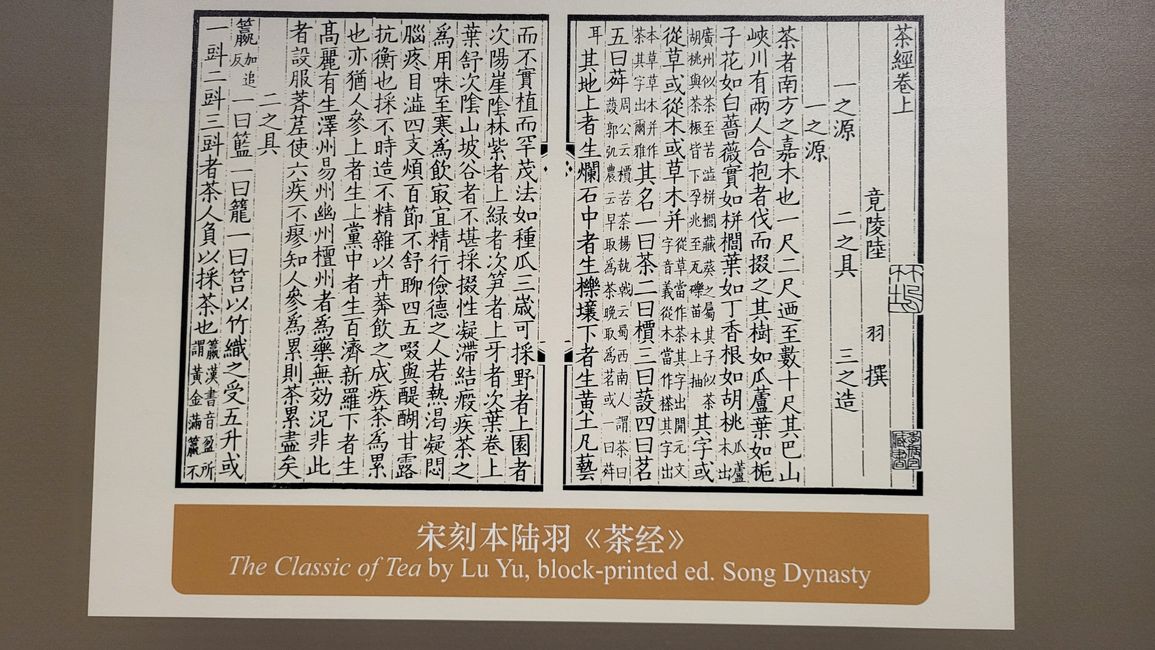 茶經卷上
竟陵陸 羽 撰
一之源 二之具 三之造
一之源
茶者南方之嘉木也一尺二尺迺至數十尺其巴山
峽川有兩人合抱者伐而掇之其樹如瓜蘆葉如栀
子花如白薔薇實如栟櫚葉如丁香根如胡桃瓜蘆木出
廣州似茶至苦澁栟櫚蒲葵之屬其子似茶胡桃與茶根皆下孕兆至瓦礫苗木上抽其字或
從草或從木或草木并從草當作茶其字出開元文字音義從木當作搽其字出
本草草木并作茶其字出爾雅其名一曰茶二曰檟三曰蔎四曰茗
五曰荈周公云檟苦茶揚執戟云蜀西南人謂茶曰蔎郭弘農云早取爲茶晚取爲茗或一曰荈
耳其地上者生爛石中者生櫟壤下者生黄土凡藝
而不實植而罕茂法如種瓜三歲可採野者上園者
次陽崖陰林紫者上緑者次笋者上牙者次葉卷上
葉舒次陰山坡谷者不堪採掇性凝滯結瘕疾茶之
爲用味至寒爲飲最宜精行儉德之人若熱渴凝悶
腦疼目澁四支煩百節不舒聊四五啜與醍醐甘露
抗衡也採不時造不精雜以卉莽飲之成疾茶爲累
也亦猶人參上者生上黨中者生百濟新羅下者生
髙麗有生澤州易州幽州檀州者爲藥無効況非此
者設服薺苨使六疾不瘳知人參爲累則茶累盡矣
二之具
籯加追反一曰籃一曰籠一曰筥以竹織之受五升或
一㪷二㪷三㪷者茶人負以採茶也籯漢書音盈所謂黃金滿籯不
宋刻本陆羽《茶经》
The Classic of Tea by Lu Yu, block-printed ed. Song Dynasty